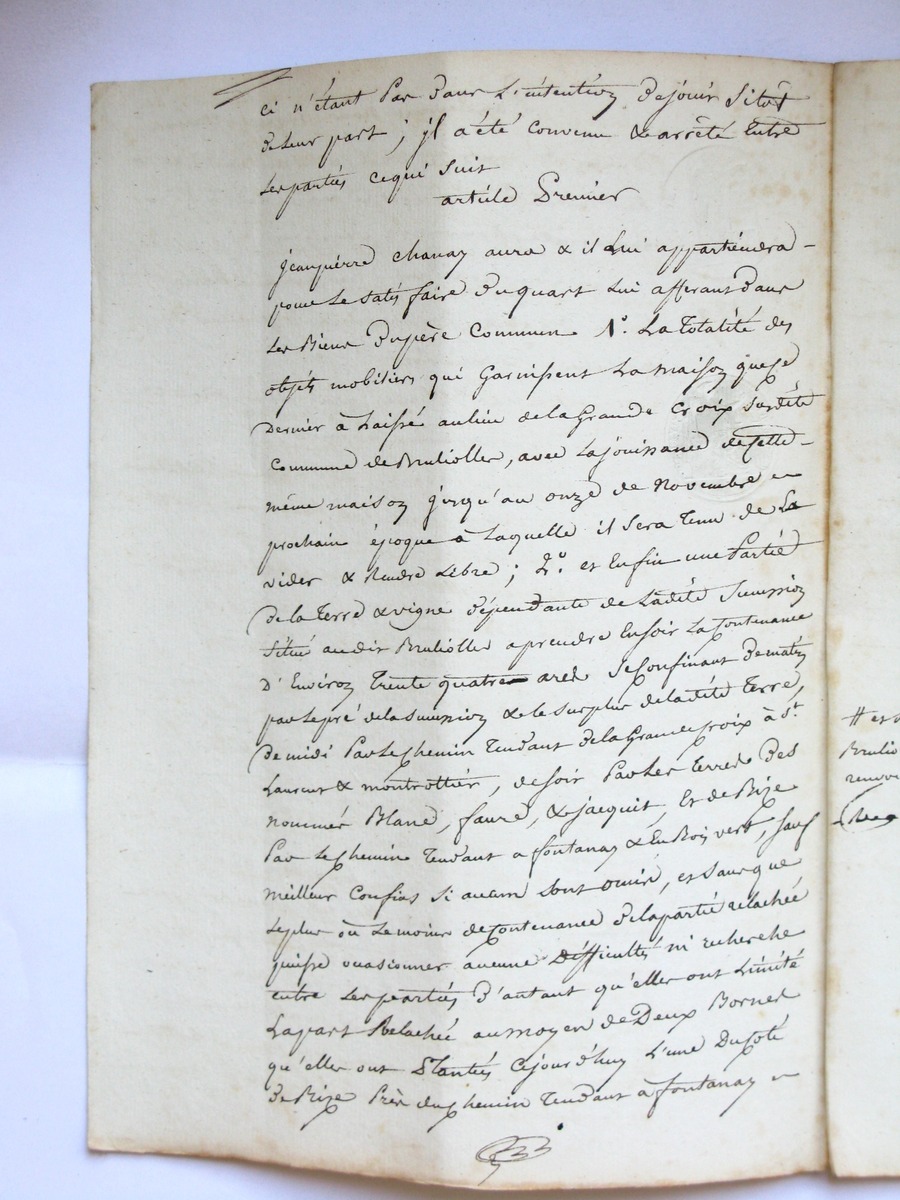 ci n'étant Pas dans L'intention de jouir Sitôt
de Leur part; jl a été Convenu & arrêté Entre
Les parties ce qui Suit
article Premier
Jeanpierre chanay aura & il Lui appartiendra -
pour Le satisfaire du quart Lui afferant dans
Les Biens du père Commun 1º. La Totalité des
objets mobiliers qui Garnissent La maison que ce
Dernier à Laissé au lieu de la Grande Croix Susdite
Commune de Brulioller, avec La jouissance de Cette
même maison jusqu'au onze de Novembre
prochain époque à Laquelle il Sera Tenu de La
vider & Rendre Libre; 2º. et Enfin une Partie
de la Terre & vigne dépendante de Ladite Succession
Située audit Brulioller a prendre En soir La Contenance
d'Environ Trente quatre ares Se Confinant de matin
par Le pré de la Succession & Le Surplus de ladite Terre,
de midi Par Le Chemin Tendant de la Grande Croix à St.
Laurent & montrottier, de soir Par Les Terres des
nommés Blanc, faure, & jacquit, Et de Bize
Par Le Chemin Tendant a fontanay & En Bois vert, sauf
meilleur Confins Si aucun sont omis, et sans que
Le plus où Le moins de Contenance de la partie relachée
puisse occasionner aucune Difficultés ni recherche
entre Les parties d'autant qu'elles ont Limité
La part Relachée au moyen de Deux Bornes
qu'elles ont Plantées Cejourd'huy L'une du Coté
de Bize Près du Chemin Tendant à fontanay
et
Brulio
renvoi